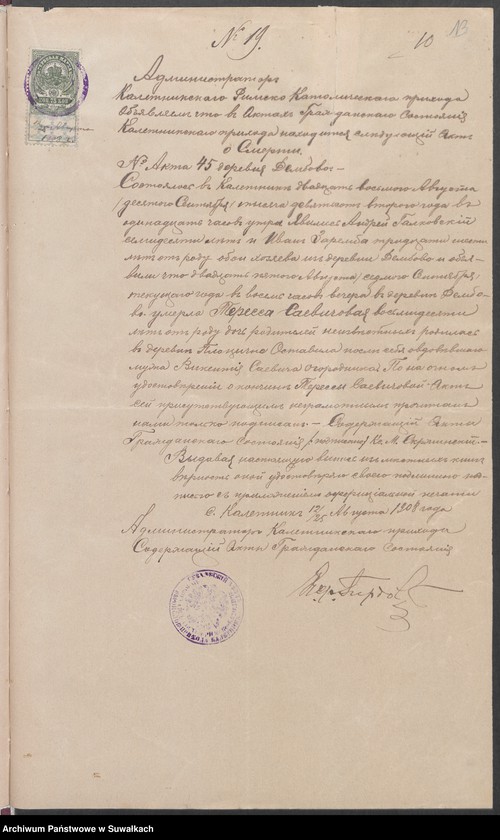 № 19.
10
13
Администраторъ
Калетникскаго Римско Католическаго прихода
Объявляетъ что въ Актахъ Гражданскаго Состоянія
Калетникскаго прихода находится слѣдующій Актъ
о Смерти.
№ Акта 45 деревня Дембово-
Состоялось въ Калетникъ двадцать восьмого Августа
/десятого Сентября/ тысяча девятьсотъ второго года въ
одинадцать часовъ утра. Явились Андрей Галковскій
семидесяти лѣтъ и Иванъ Заремба тридцати шести
лѣтъ отъ роду оба хозяева изъ деревни Дембово и объя-
вили что двадцать пятого Августа /седьмого Сентября/
текущаго года въ восемь часовъ вечера въ деревнѣ Дембо-
во умерла Тересса Саевичовая восьмидесяти
лѣтъ отъ роду дочь родителей неизвѣстныхъ родилась
въ деревнѣ Плоцично Оставила послѣ себя овдовѣвшаго
мужа Викентія Саевича огородника По наочномъ
удостовѣреніи о кончинѣ Терессы Саевичовой Актъ
сей присутствующимъ неграмотнымъ прочитанъ
нами только подписанъ - Содержащій Акты
Гражданскаго Состоянія /подписано/ Кс. М.
Выдавая настоящую выпись изъ мѣстныхъ книгъ
вѣрность оной удостовѣряю своею подписью
съ приложеніемъ оффиціальной печати
с. Калетникъ 12/25 Августа 1908 года
Администраторъ Калетникскаго прихода
Содержащій Акты Гражданскаго Состоянія
Archiwum Państwowe w Suwałkach